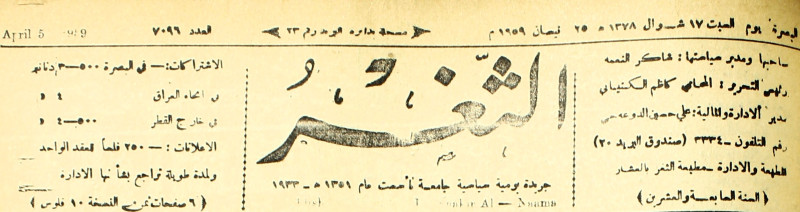 البصرة يوم السبت ١٧ شوال ١٣٧٨ هـ ٢٥ نيسان ١٩٥٩ م
مسجلة بدائرة البريد رقم ٢٣
العدد ٧٠٩٦
April 5
صاحبها ومدير سياستها : شاكر النعمه
رئيس التحرير : المحامي كاظم
مدير الادارة والمالية : علي حسين
رقم التلفون - ٣٣٣٤ (صندوق البريد ٢٠)
المطبعة والادارة - مطبعة الثغر بالعشار
(السنة السابعة والعشرين)
الثغر
جريدة يومية سياسية جامعة تأسست عام ١٣٥١ هـ - ١٩٣٣
Al - Naama
الاشتراكات :- في البصرة ٥٠٠-٣ دنانير
في انحاء العراق ٤ »
في خارج القطر ٥٠٠-٤ »
الاعلانات :- ٢٥٠ فلساً للعقد الواحد
ولمدة طويلة تراجع بشأنها الادارة
(٦ صفحات ثمن النسخة ١٠ فلوس)